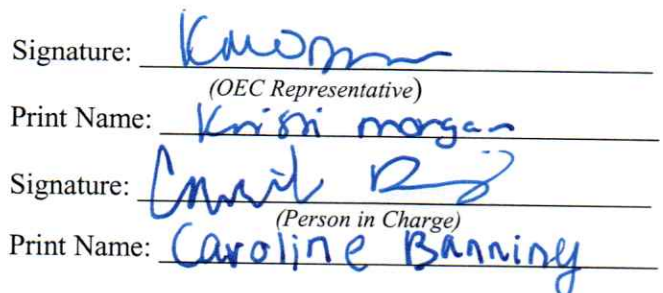 Signature:
(OEC Representative)
Print Name: Kristi morgan
Signature:
(Person in Charge)
Print Name: Caroline Banning